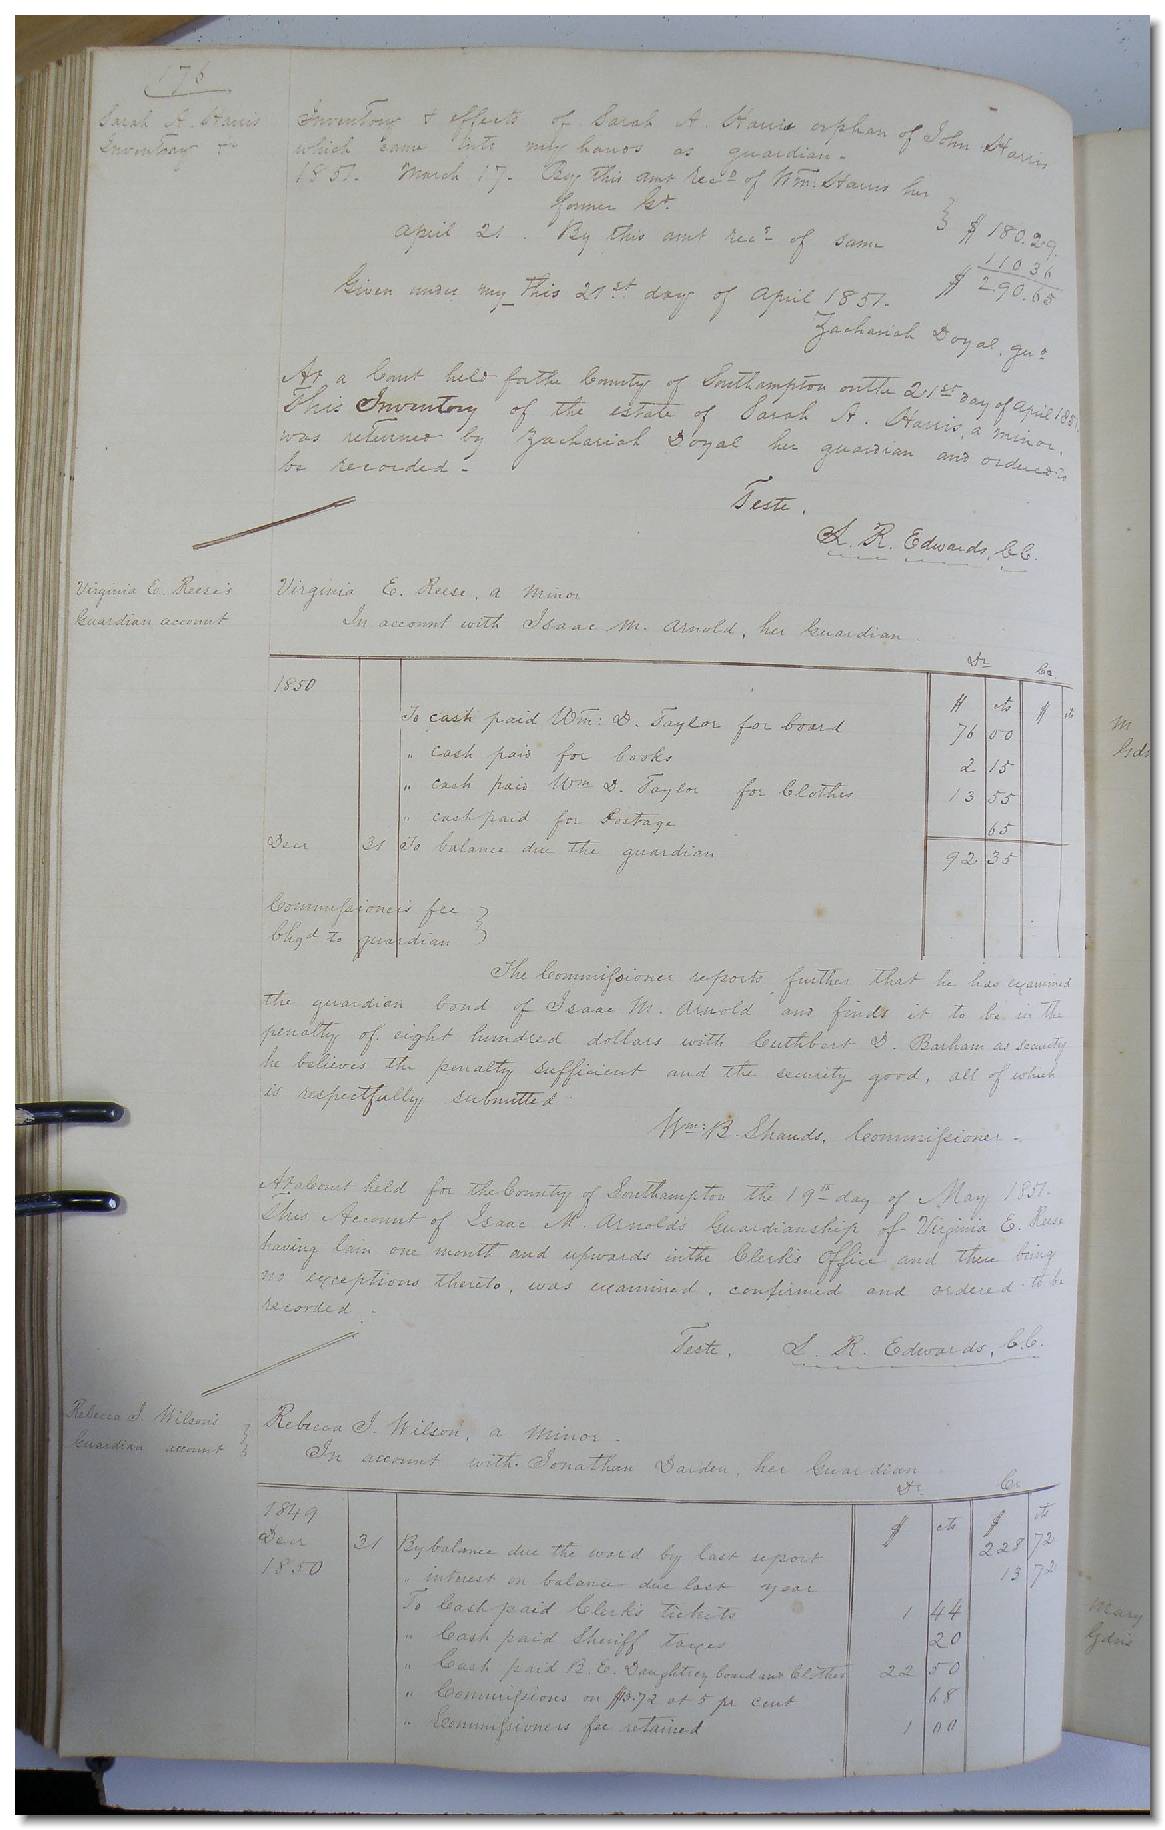 176
Sarah A. Harris
Inventory &c
Inventory & effects of Sarah A. Harris orphan of John Harris
which came into my hands as guardian.
1851. March 17. By this amt recd of Wm: Harris her
former Gd. } $180.29
April 21. By this amt recd of same 110 36
$290.65
Given under my this 21st day of April 1851.
Zachariah Doyal, gudn
At a Court held for the County of Southampton on the 21st day of April 1851
This Inventory of the estate of Sarah A. Harris, a minor,
was returned by Zachariah Doyal her guardian and ordered to
be recorded.
Teste.
L. R. Edwards, C.C.
Virginia E. Reese's
Guardian account
Virginia E. Reese, a minor
In account with Isaac M. Arnold, her Guardian
Dr Cr
1850
$ cts $ cts
To cash paid Wm: D. Taylor for board 76 00
" cash paid for books 2 15
" cash paid Wm D. Taylor for Clothes 13 55
" cash paid for Postage 65
Decr 31 To balance due the guardian 92 35
Commissioner's fee }
Chgd to guardian }
The Commissioner reports further that he has examined
the guardian bond of Isaac M. Arnold and finds it to be in the
penalty of eight hundred dollars with Cuthbert D. Barham as security
he believes the penalty sufficient and the security good, all of which
is respectfully submitted
Wm: B. Shands, Commissioner.
At a Court held for the County of Southampton the 19th day of May 1851.
This Account of Isaac M. Arnolds Guardianship of Virginia E. Reese
having lain one month and upwards in the Clerk's Office and there being
no exceptions thereto, was examined, confirmed and ordered to be
recorded.
Teste. L. R. Edwards, C.C.
Rebecca J. Wilson's }
Guardian account }
Rebecca J. Wilson, a minor.
In account with Jonathan Darden, her Guardian
Dr. Cr
1849 $ cts $ cts
Decr 31 By balance due the ward by last report 228 72
1850 " interest on balance due last year 13 72
To Cash paid Clerk's tickets 1 44
" Cash paid Sheriff taxes 20
" Cash paid B. E. Daughtrey board and Clothes 22 50
" Commissions on $13.72 at 5 pr cent 68
" Commissioners fee retained 1 00
M
Gdn
Mary
Gdn's